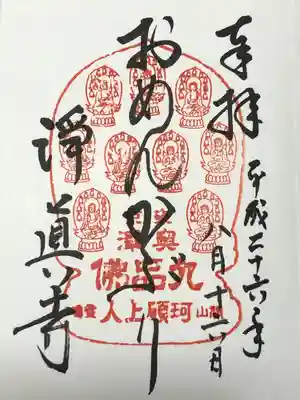 奉拝
平成二十六年
八月十六日
おめんかぶり
淨真寺
奥澤
九品佛
開山珂碩上人